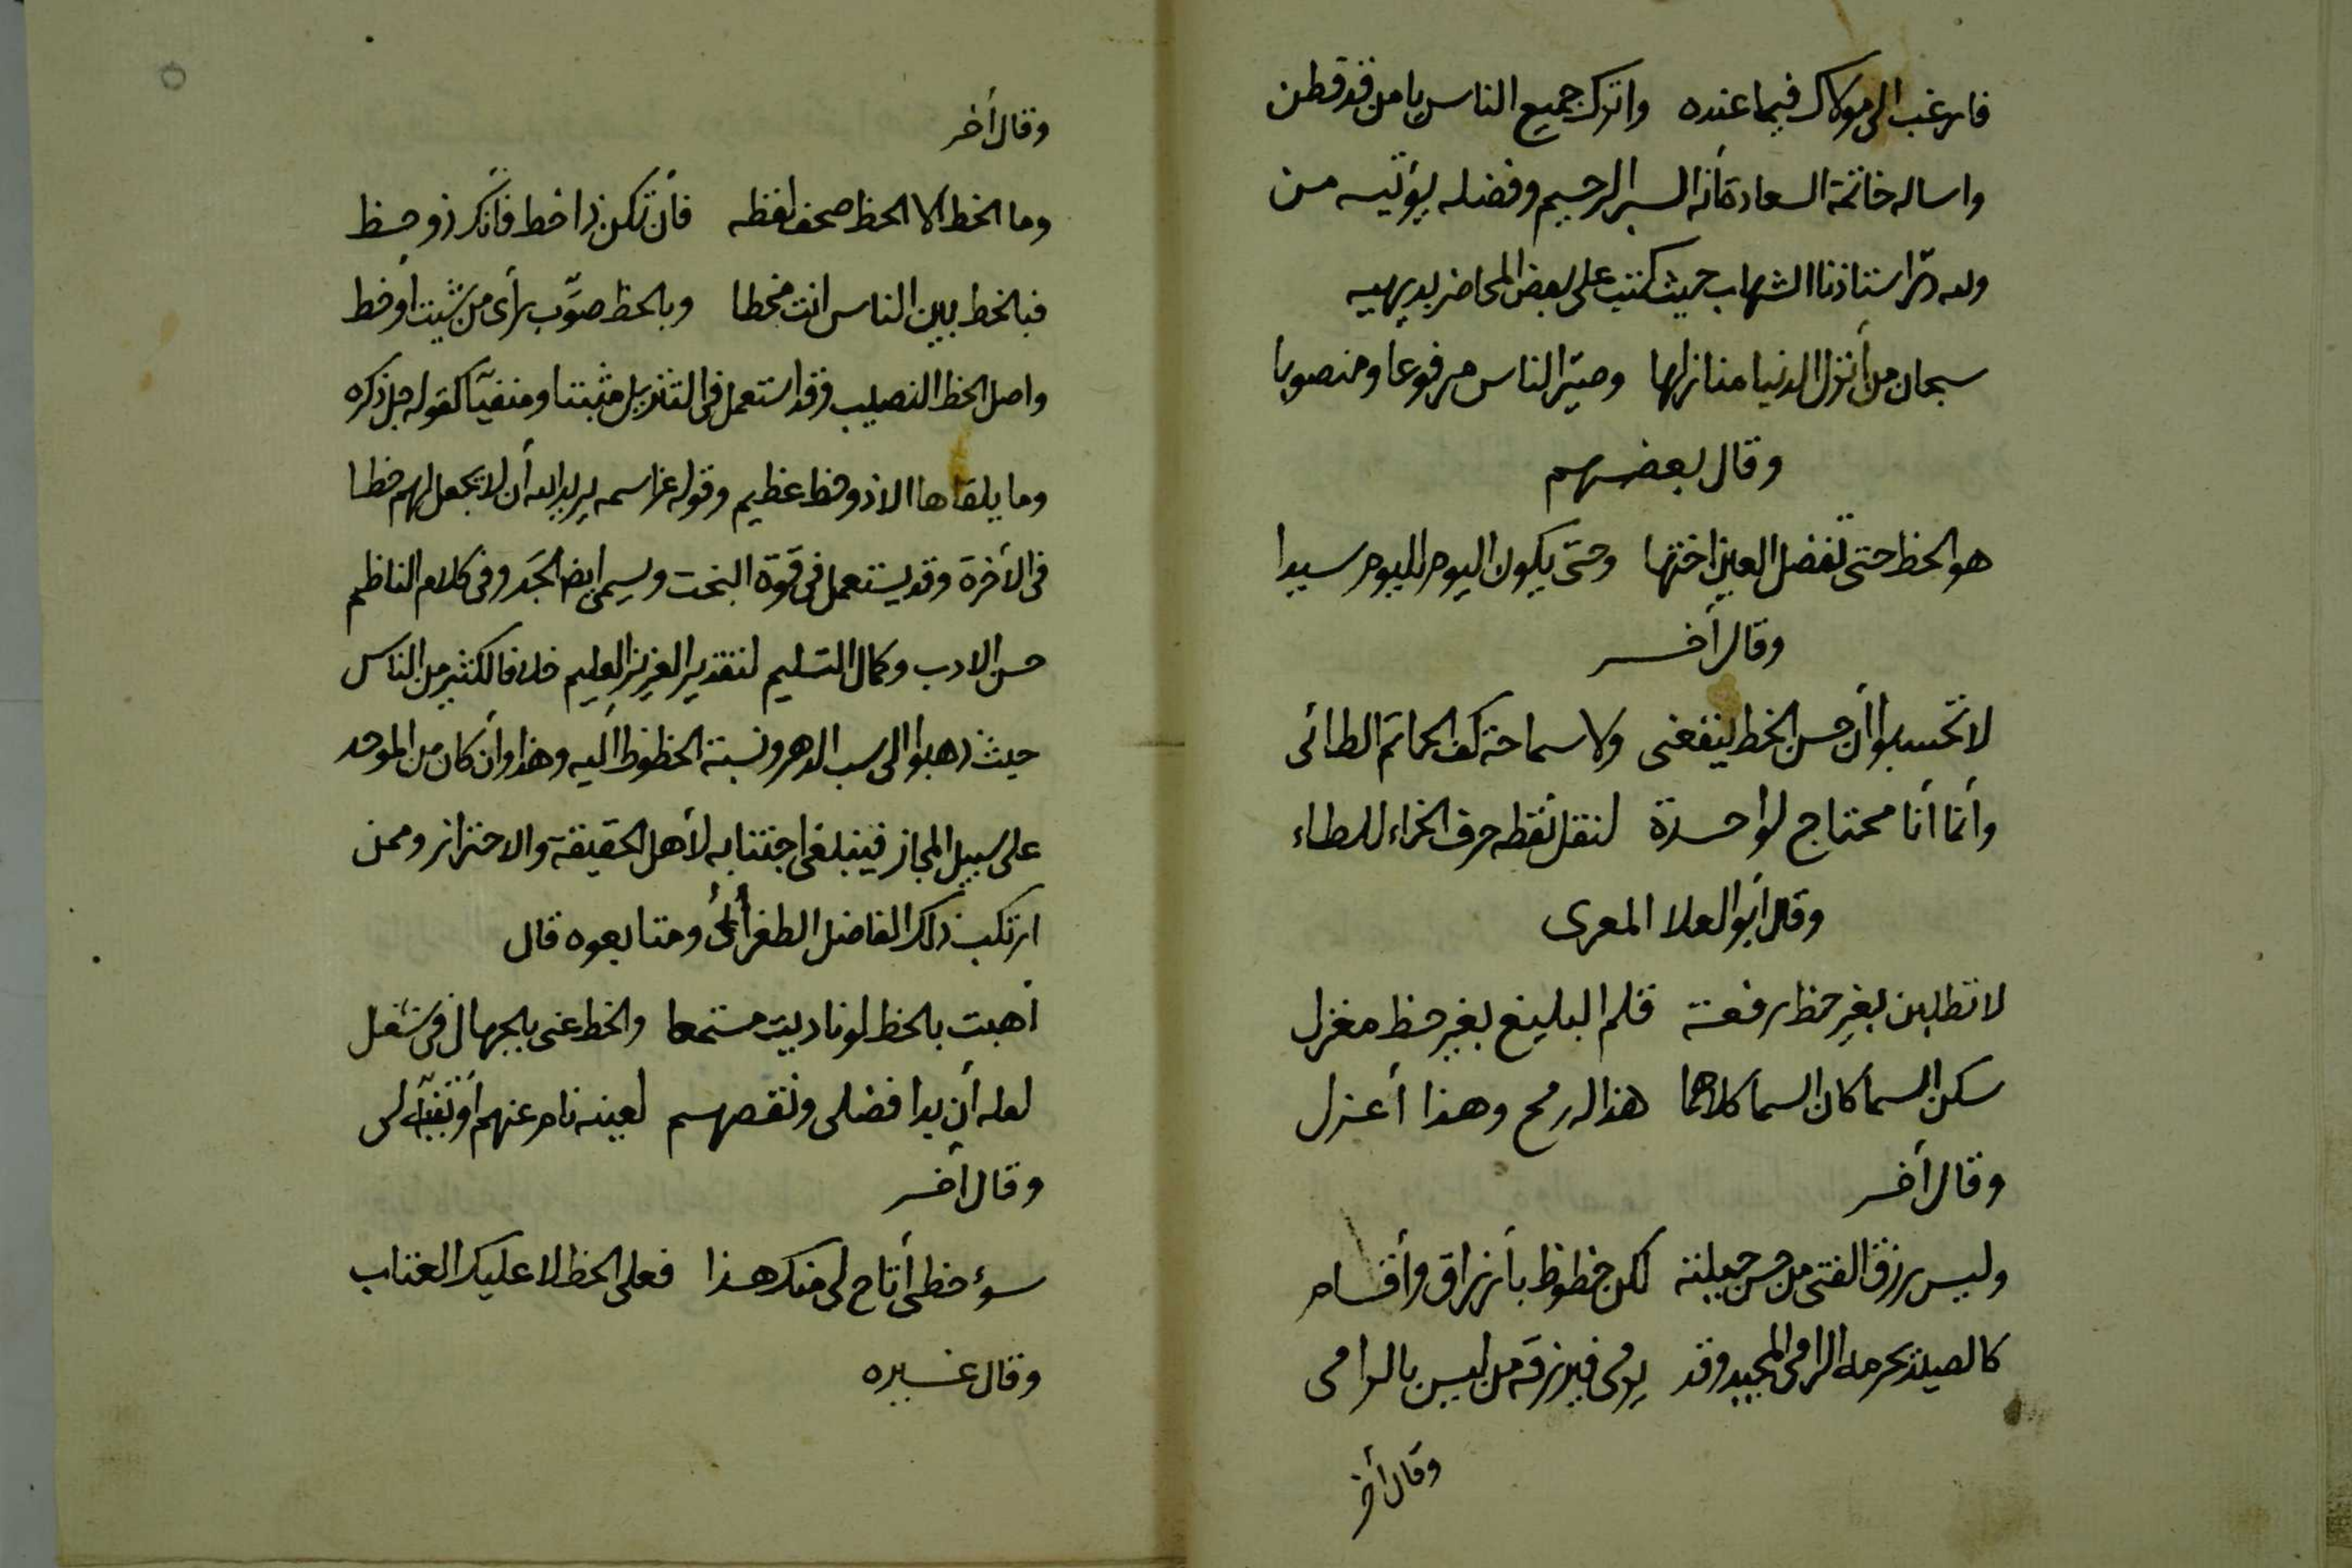 فارغب الى مولاك فيما عنده واترك جميع الناس يا من قد قطن
واساله خاتمة السعادة أنه البر الرحيم وفضله يؤتيه من
ولله در استاذنا الشهاب حيث كتب على بعض المحاضر بديهيه
سبحان من أنزل الدنيا منازلها وصيّر الناس مرفوعا ومنصوبا
وقال بعضهم
هو الحظ حتى تفضل العين اختها وحتى يكون اليوم لليوم سيدا
وقال أخر
لا تحسبوا أن حسن الخط ينفعنى ولا سماحة كف الحاتم الطائى
وأنما أنا محتاج لواحدة لنقل نقطه حرف الخاء للطاء
وقال أبو العلا المعرى
لا تطلبن بغير حظ رفعة قلم البليغ بغير حظ مغزل
سكن السما كان السما كلاهما هذا له رمح وهذا أعزل
وقال أخر
وليس رزق الفتى من حسن حيلته لكن حظوظ بأرزاق وأقسام
كالصيد يحرمه الرامى المجيد وقد يرمى فيرزقه من ليس بالرامى
وقال أخر
وقال أخر
وما الخط الا الحظ صحف لفظه فأن تكن ذا خط فأنك ذو حظ
فبالخط بين الناس انت مخطا وبالحظ صوّب رأى من شيت أو خط
واصل الحظ النصيب وقد استعمل فى التنزيل مثبتا ومنفيّا كقوله جل ذكره
وما يلقاها الا ذو حظ عظيم وقوله عز اسمه يريد الله أن لا يجعل لهم حظا
فى الأخرة وقد يستعمل فى قوة البخت ويسمى ايضا الجَد وفى كلام الناظم
حسن الادب وكمال التسليم لتقدير العزيز العليم خلافا لكثير من الناس
حيث ذهبوا الى سب الدهر ونسبة الحظوظ أليه وهذا وأن كان من الموحد
على سبيل المجاز فينبغى اجتنابه لأهل الحقيقة والاحتراز وممن
ارتكب ذلك الفاضل الطغرائى ومتابعوه قال
أهبت بالحظ لو ناديت مستمعا والحظ عنى بالجهال فى شغل
لعله أن بدا فضلى ونقصهم لعينه نام عنهم أو تنبّه لى
وقال أخر
سوء حظى أتاح لى منك هذا فعلى الحظ لا عليك العتاب
وقال غيره